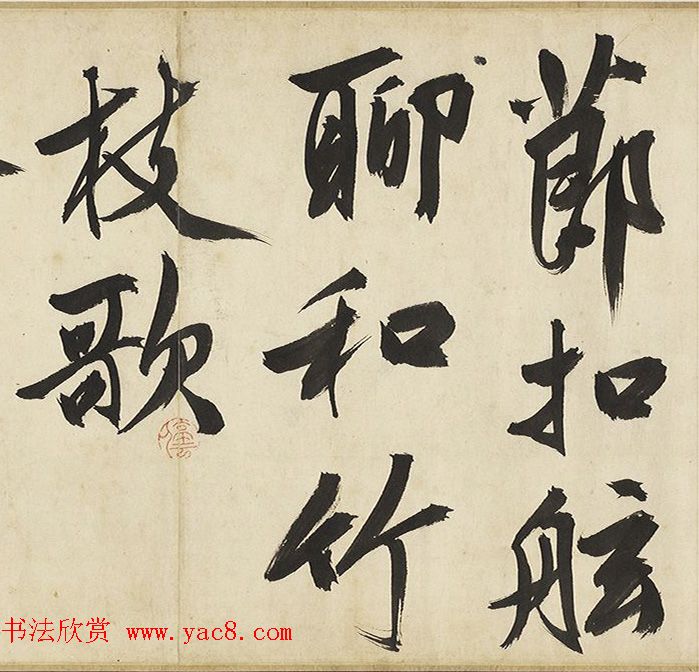 節扣舷
聊和竹
枝歌
书法欣赏 www.yac8.com